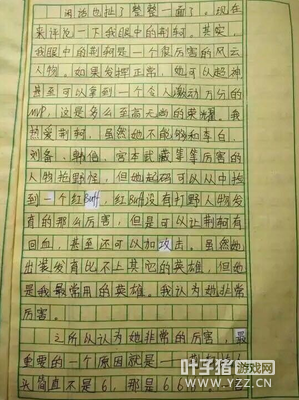 闲话也扯了整整一面了。现在
来评说一下我眼中的荆轲。其实,
我眼中的荆轲是一个很厉害的风云
人物。如果发挥正常,她可以超神
甚至可以拿到一个令人激动万分的
MVP,这是多么至高无尚的荣耀。我
热爱荆轲。虽然她不能够和李白、
刘备、韩信、宫本武藏等等厉害的
人物抢野怪,但她起码可以从中抢
到一个红Buff。红Buff没有打野人物发
育的那么厉害,但是可以让荆轲有
回血,甚至还可以加攻击。虽然她
出装发育比不上其它的英雄,但她
是我最常用的英雄。我认为她非常
厉害。
之所以认为她非常的厉害,最
重要的一个原因就是——
头简直不是6,那是666
叶子猪游戏网
www.YZZ.CN